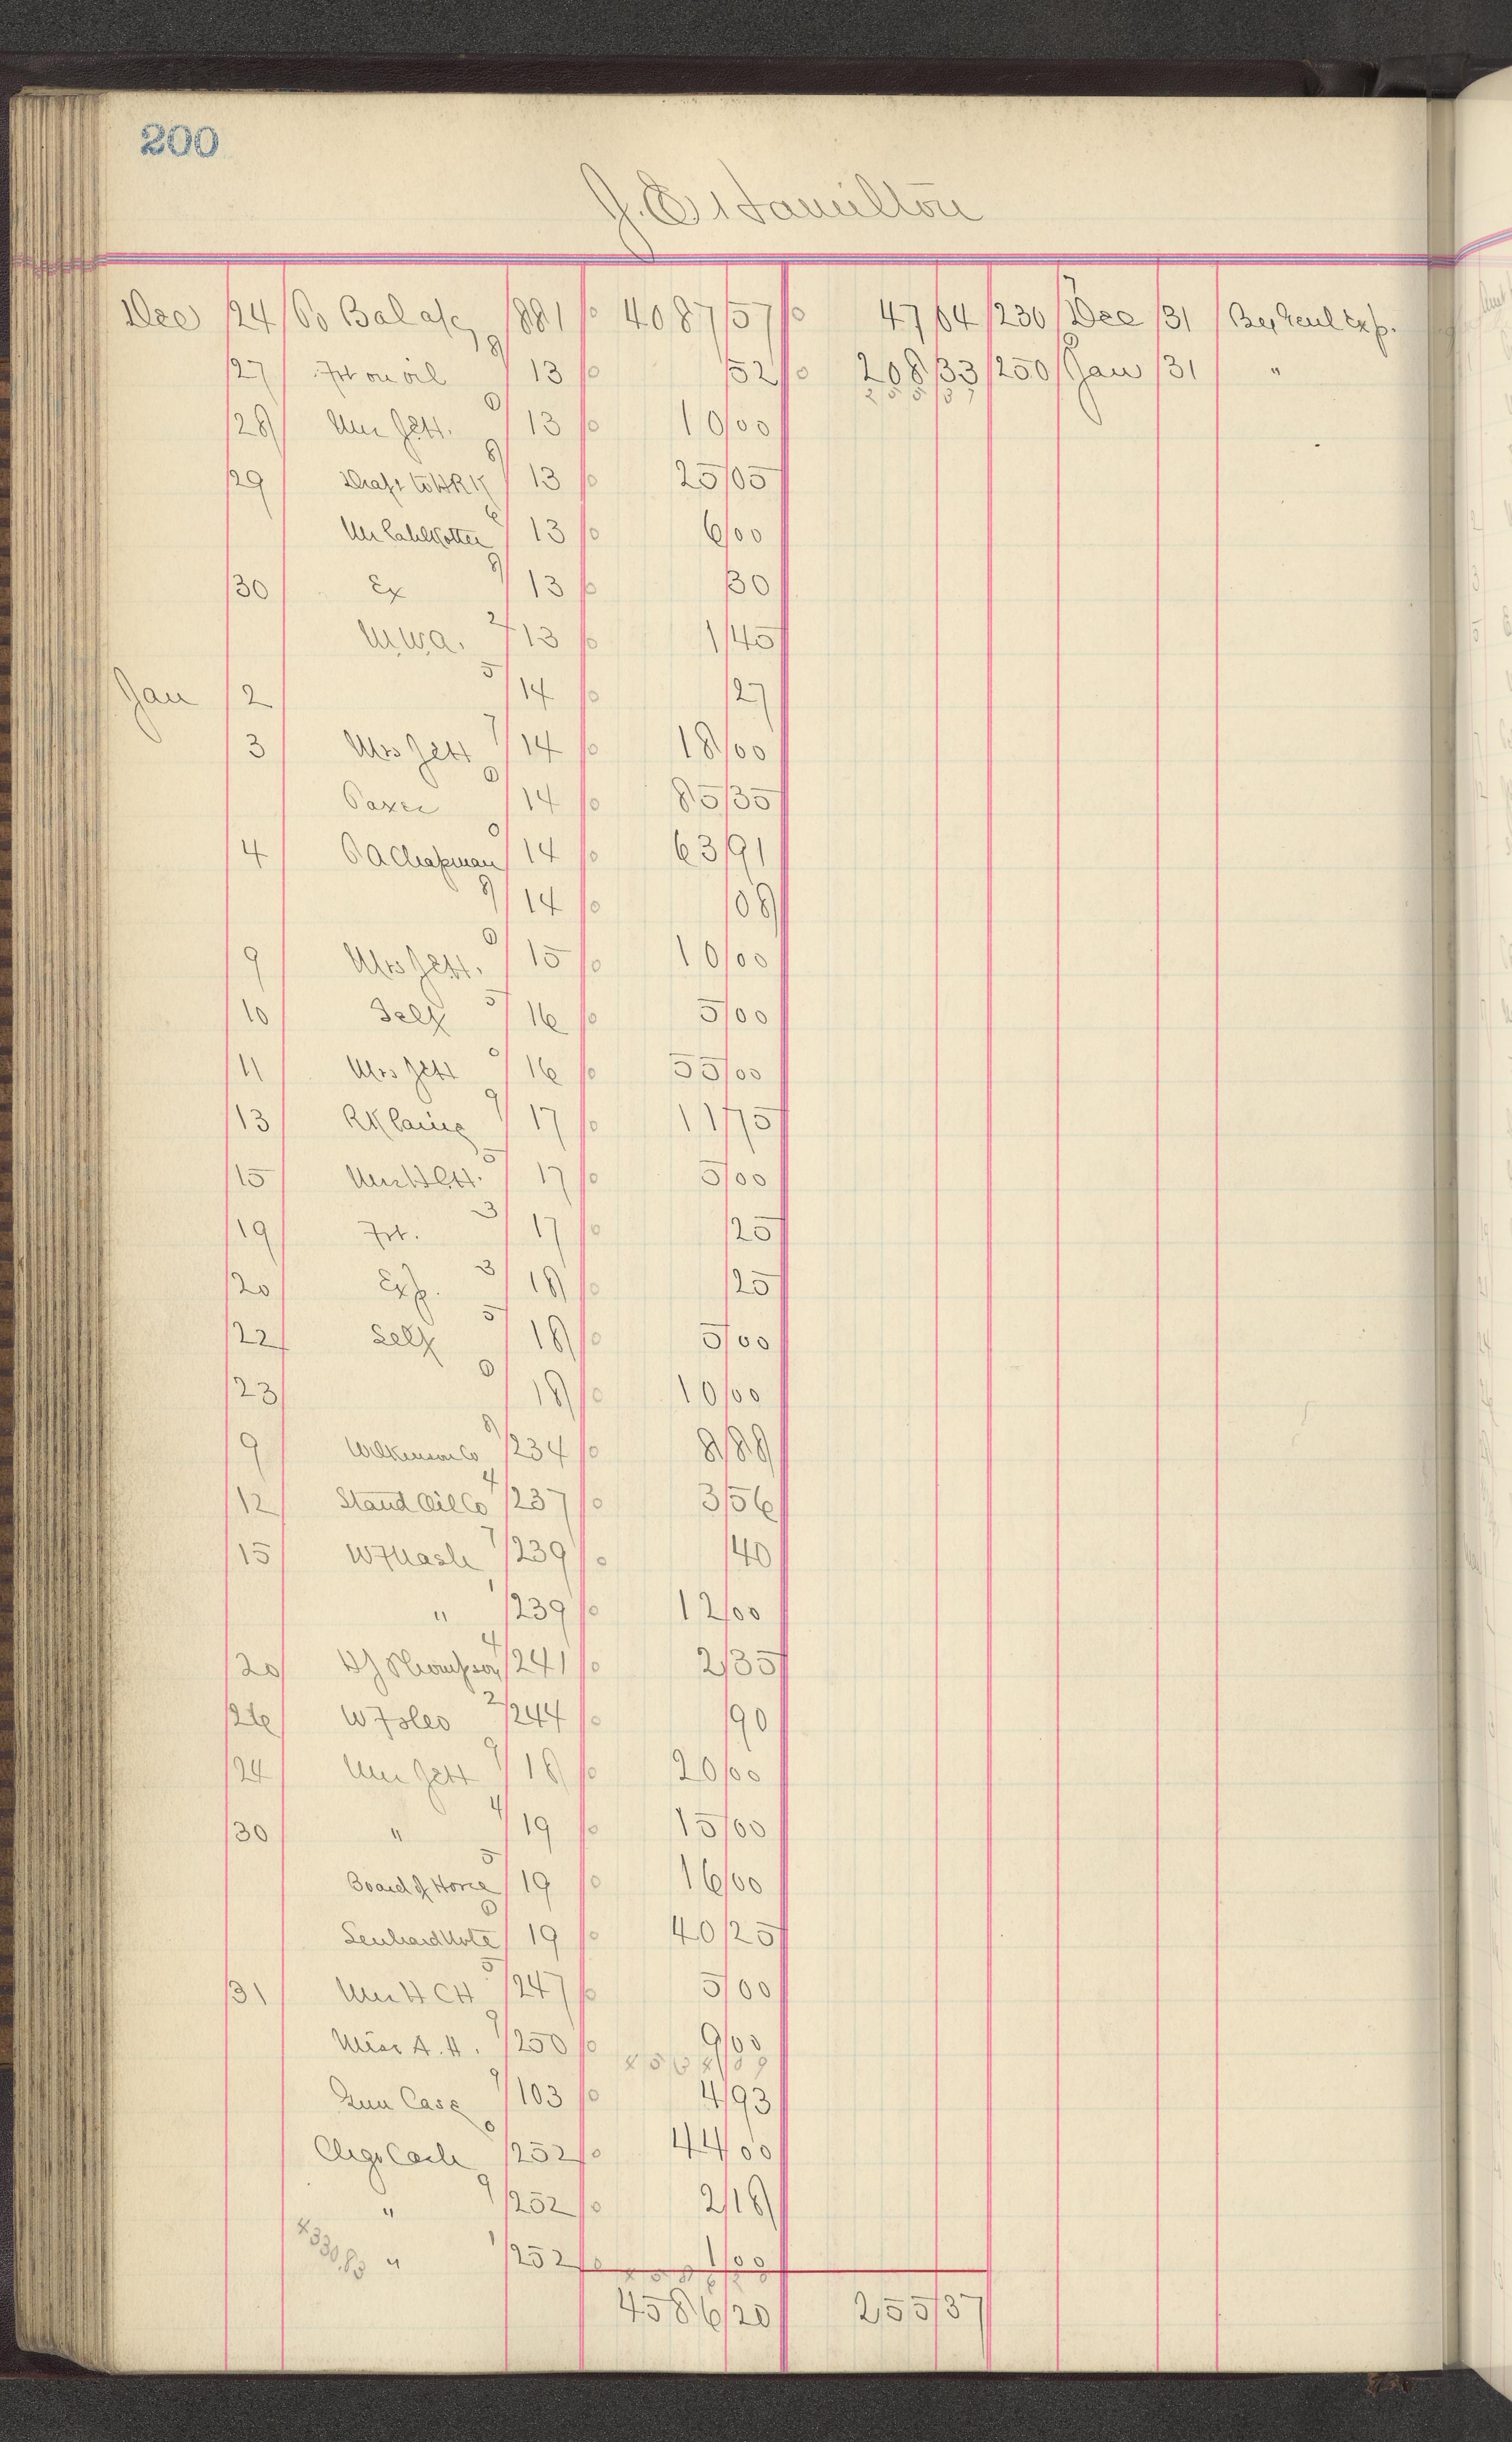 200
J. E. Hamilton
Dec 24 To Bal a/c 881 4087 57 47 04 230 Dec 31 By Genl Exp.
27 Frt on oil 13 52 208 33 250 Jan 31 "
255 37
28 Mrs Jett. 13 10 00
29 Draft to HRK 13 25 05
13 6 00
30 Ex 13 30
M.W.a. 13 1 45
Jan 2 14 27
3 Mrs Jett 14 18 00
Taxes 14 85 35
4 O A Chapman 14 63 91
14 08
9 Mrs Jett. 15 10 00
10 Self 16 5 00
11 Mrs Jett 16 55 00
13 17 11 75
15 17 5 00
19 Frt. 17 25
20 Exp. 18 25
22 Self 18 5 00
23 18 10 00
9 Wilkinson Co 234 8 88
12 Stand Oil Co 237 3 56
15 W F Nash 239 40
" 239 12 00
20 D J Thompson 241 2 35
26 244 90
24 Mrs Jett 18 20 00
30 " 19 15 00
Board of Horse 19 16 00
Note 19 40 25
31 247 5 00
Miss A. H. 250 9 00
Gun Case 103 4 93
Chgo Cash 252 44 00
" 252 2 18
4330.83 " 252 1 00
4586 20 255 37